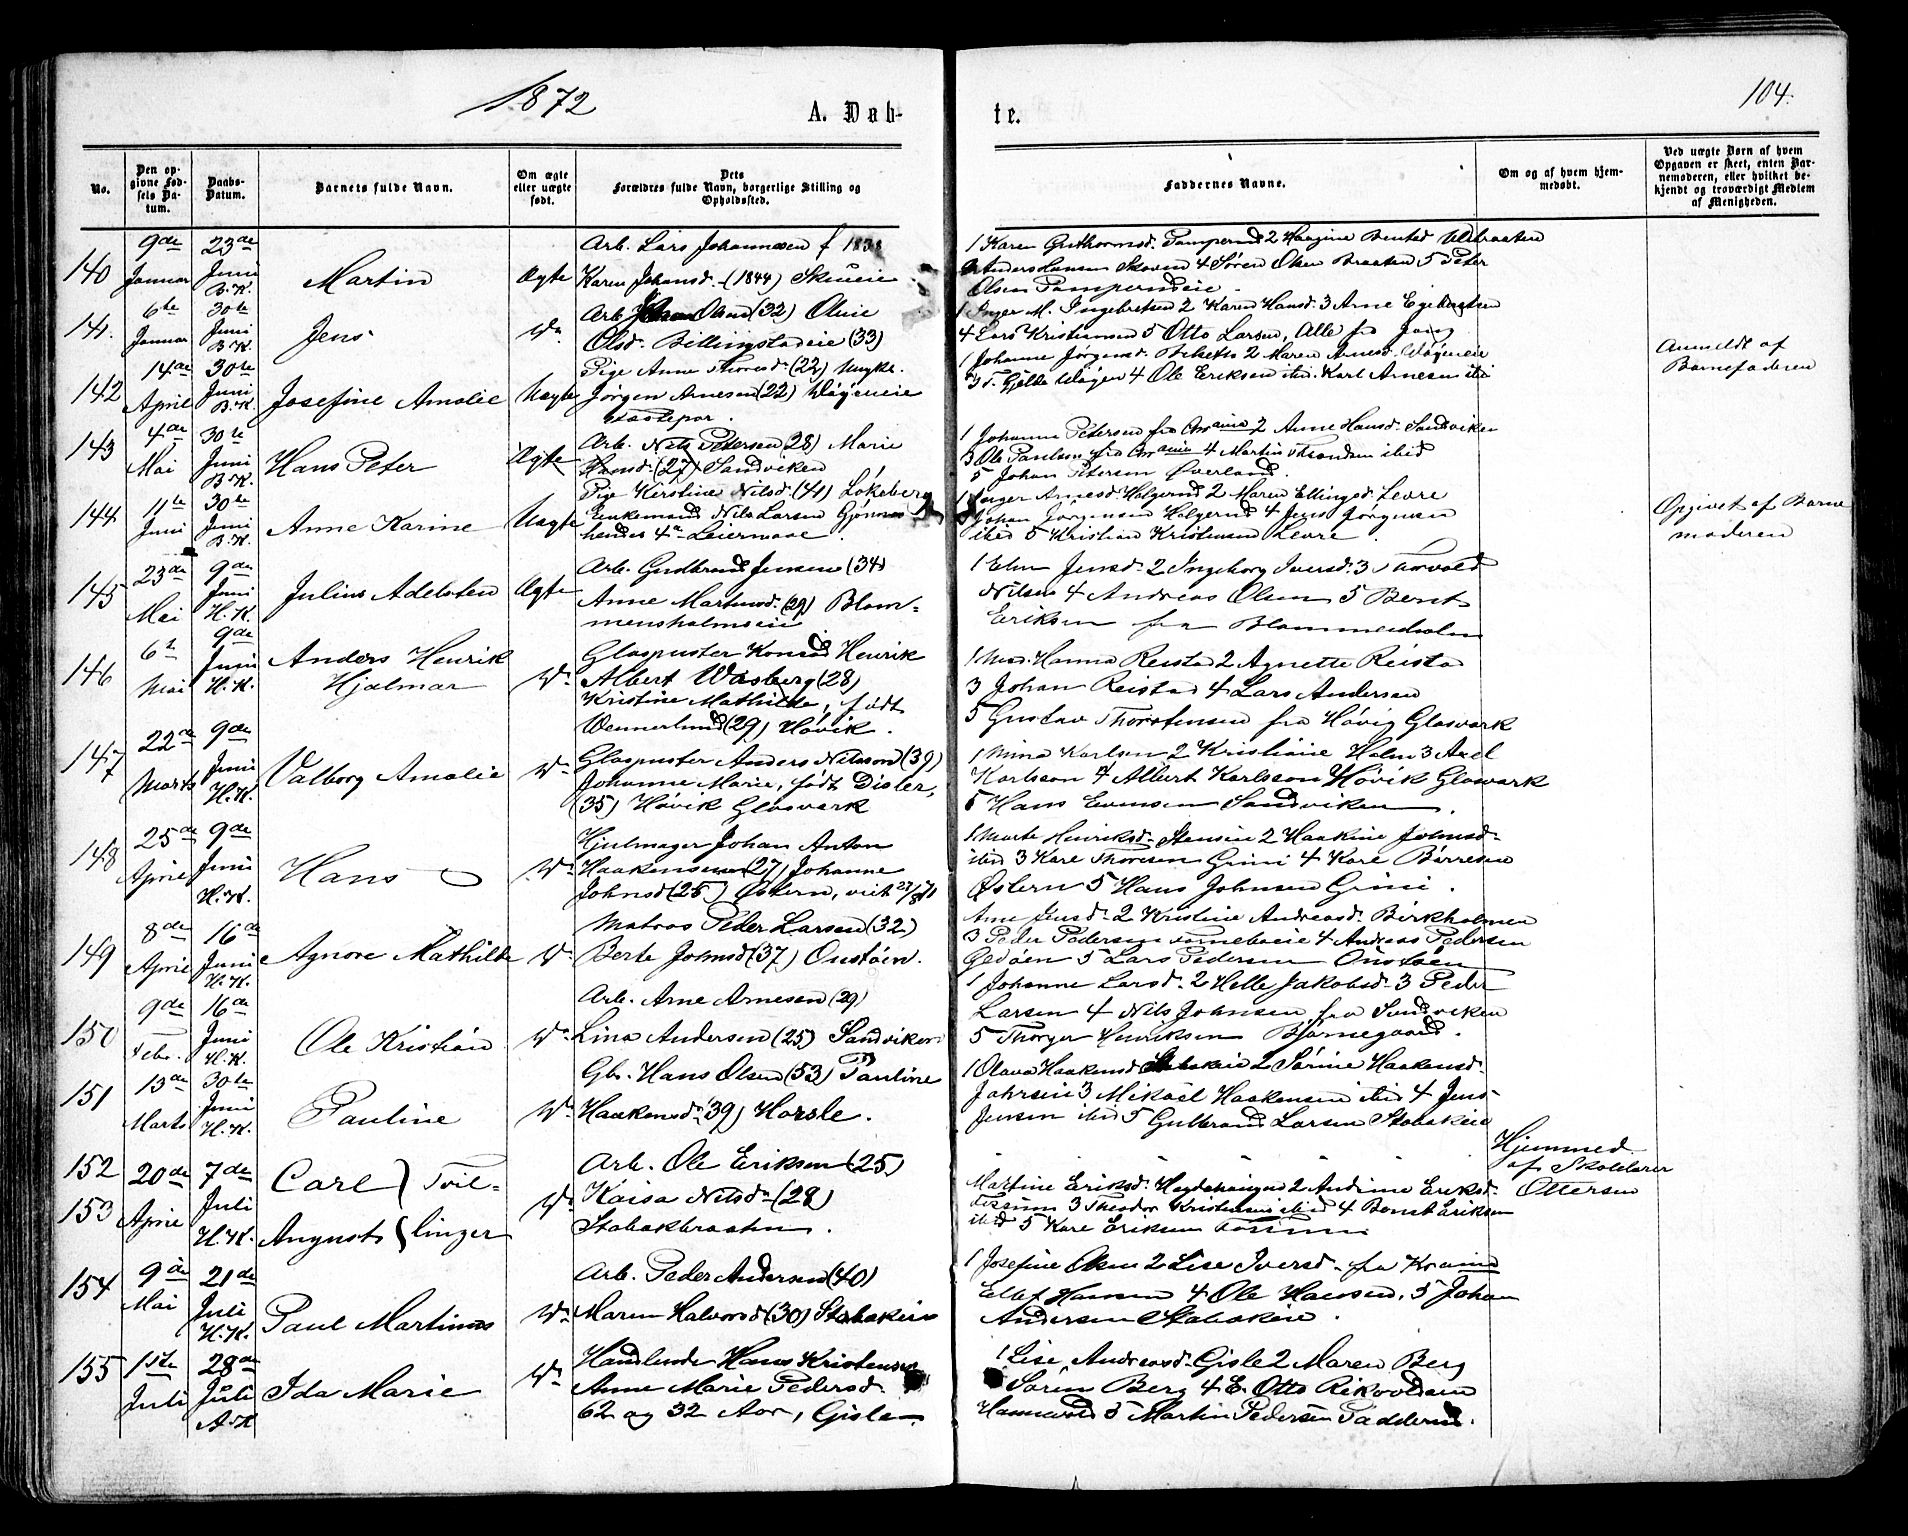 1872
A. Døb-
te.
104.
No.
Den op-
givne Fød-
sels Da-
tum.
Daabs-
Datum.
Barnets fulde Navn.
Om ægte
eller uægte
født.
Dets
Forældres fulde Navn, borgerlige Stilling og
Opholdssted.
Faddernes Navne.
Om og af hvem hjem-
medøbt.
Ved uægte Børn af hvem
Opgaven er skeet, enten Bar-
nemoderen, eller hvilket be-
kjendt og troværdigt Medlem
af Menigheden.
140
9de
Januar
23de
Juni
B. K.
Martin
Ægte
Arb. Lars Johannesen f 1838
Karen Johansd. (1844)
1 Karen Guthormsd. 2
Anders Hansen Skoven 4 Søren Olsen Braaten 5 Peter
Olsen
141.
6te
Januar
30te
Juni
B. K.
Jens
Do
Arb. Olsen (32) Oline
Olsd. Billingstadeie (33)
1 Inger M. Ingebretsen 2 Karen Hansd. 3 Arne
4 Lars Kristiansen 5 Otto Larsen, Alle fra
142
14de
April
30te
Juni
B. K.
Josefine Amalie
Uægte
Pige Anne Thoresd. (22) Ungkl.
Jørgen Arnesen (22)
1 Johanne Jørgensd. 2 Maren Arnesd.
4 Ole Eriksen ibid. Karl Arnesen ibid
Anmeldt af
Barnefaderen
143
4de
Mai
30te
Juni
B. K.
Hans Peter
Ægte
Arb. Nils Petersen (28) Marie
Hansd. (27) Sandviken
1 Johanne Petersen fra 2 Anne Hansd. Sandviken
3 Ole Paulsen fra 4 Martin ibid
5 Johan Petersen Øverland
144
11te
Juni
30te
Juni
B. K.
Anne Karine
Uægte
Pige Kerstine Nilsd. (41) Løkeberg
Enkemand Nils Larsen
hendes 4de Leiermaal.
1 Inger Arnesd. 2 Maren Ellingsd. Levre
Johan Jørgensen 4 Jens Jørgensen
ibid 5 Kristian Kristensen Levre.
Opgivet af Barne
moderen
145
23de
Mai
9de
Juni
H. K.
Julius Adelsten
Ægte
Arb. Gudbrand Jensen (34)
Anne Martinsd. (29) Blom-
mensholmseie
1 Elen Jensd. 2 Ingeborg Iversd. 3 Thorvald
Nilsen 4 Andreas Olsen 5 Bernt
Eriksen fra Blommenholm
146
6te
Mai
9de
Juni
H. K.
Anders Henrik
Hjalmar
Do
Glaspuster Konrad Henrik
Albert Wasberg (28)
Kristine Mathilde, født
Wennerlund (29) Høvik.
1 Mad. Hanna Reistad 2 Agnette Reistad
3 Johan Reistad 4 Lars Andersen
5 Gustav Thorstensen fra Høvig Glasværk
147
22de
Marts
9de
Juni
H. K.
Valborg Amalie
Do
Glaspuster Anders Nilsson (39)
Johanne Marie, født Disler,
(35) Høvik Glasværk
1 Mina Karlsen 2 Kristiane Holm 3 Axel
Karlsson 4 Albert Karlsson Høvik Glasværk
5 Hans Evensen Sandviken.
148
25de
April
9de
Juni
H. K.
Hans
Do
Hjulmager Johan Anton
Haakensen (27) Johanne
Johnsd (25) Østern, viet
1 Marte Henriksd. 2 Haakine Johnsd.
ibid 3 Kare Thoresen Grini 4 Kare Børresen
Østern 5 Hans Johnsen Grini.
149
8de
April
16de
Juni
H. K.
Agnore Mathilde
Do
Matros Peder Larsen (32)
Berte Johnsd (37) Oustøen.
Ane Jensd. 2 Kristine Andreasd. Birkholmen
3 Peder Pedersen 4 Andreas Pedersen
Gaøen 5 Lars Pedersen Oustøen
150
9de
Febr.
16de
Juni
H. K.
Ole Kristian
Do
Arb. Arne Arnesen (29)
Lina Andersen (25) Sandviken
1 Johanne Larsd. 2 Helle Jakobsd. 3 Peder
Larsen 4 Nils Johnsen fra Sandviken
5 Thorger Henriksen Bjørnegaard.
151
13de
Marts
30te
Juni
H. K.
Pauline
Do
Gbr. Hans Olsen (53) Pauline
Haakensd. (39) Horsle.
1 Olava Haakensd. 2 Sørine Haakensd.
3 Mikael Haakensen ibid 4 Jens
Jensen ibid 5 Gulbrand Larsen Stabækeie
152
153
20de
April
7de
Juli
H. K.
Carl } Tvil-
August } linger
Do
Arb. Ole Eriksen (25)
Kaisa Nilsd. (28)
Stabækbraaten.
Martine Eriksd. 2 Andrine Eriksd.
3 Theodor Kristensen ibid 4 Bernt Eriksen
ibid 5 Kare Eriksen
Hjemmed
af Skolelærer
Ottersen
154
9de
Mai
21de
Juli
H. K.
Paul Martinus
Do
Arb. Peder Andersen (40)
Maren Halvorsd (30) Stabækeie
1 Josefine Olsen 2 Lise Iversd. fra
Hansen 4 Ole Hansen, 5 Johan
Andersen Stabækeie.
155
1ste
Juli
28de
Juli
A. K
Ida Marie
Do
Handlende Hans Kristensen
Anne Marie Pedersd.
62 og 32 Aar, Gisle.
1 Lise Andreasd. Gisle 2 Maren Berg
Søren Berg 4 E. Otto
5 Martin Pedersen